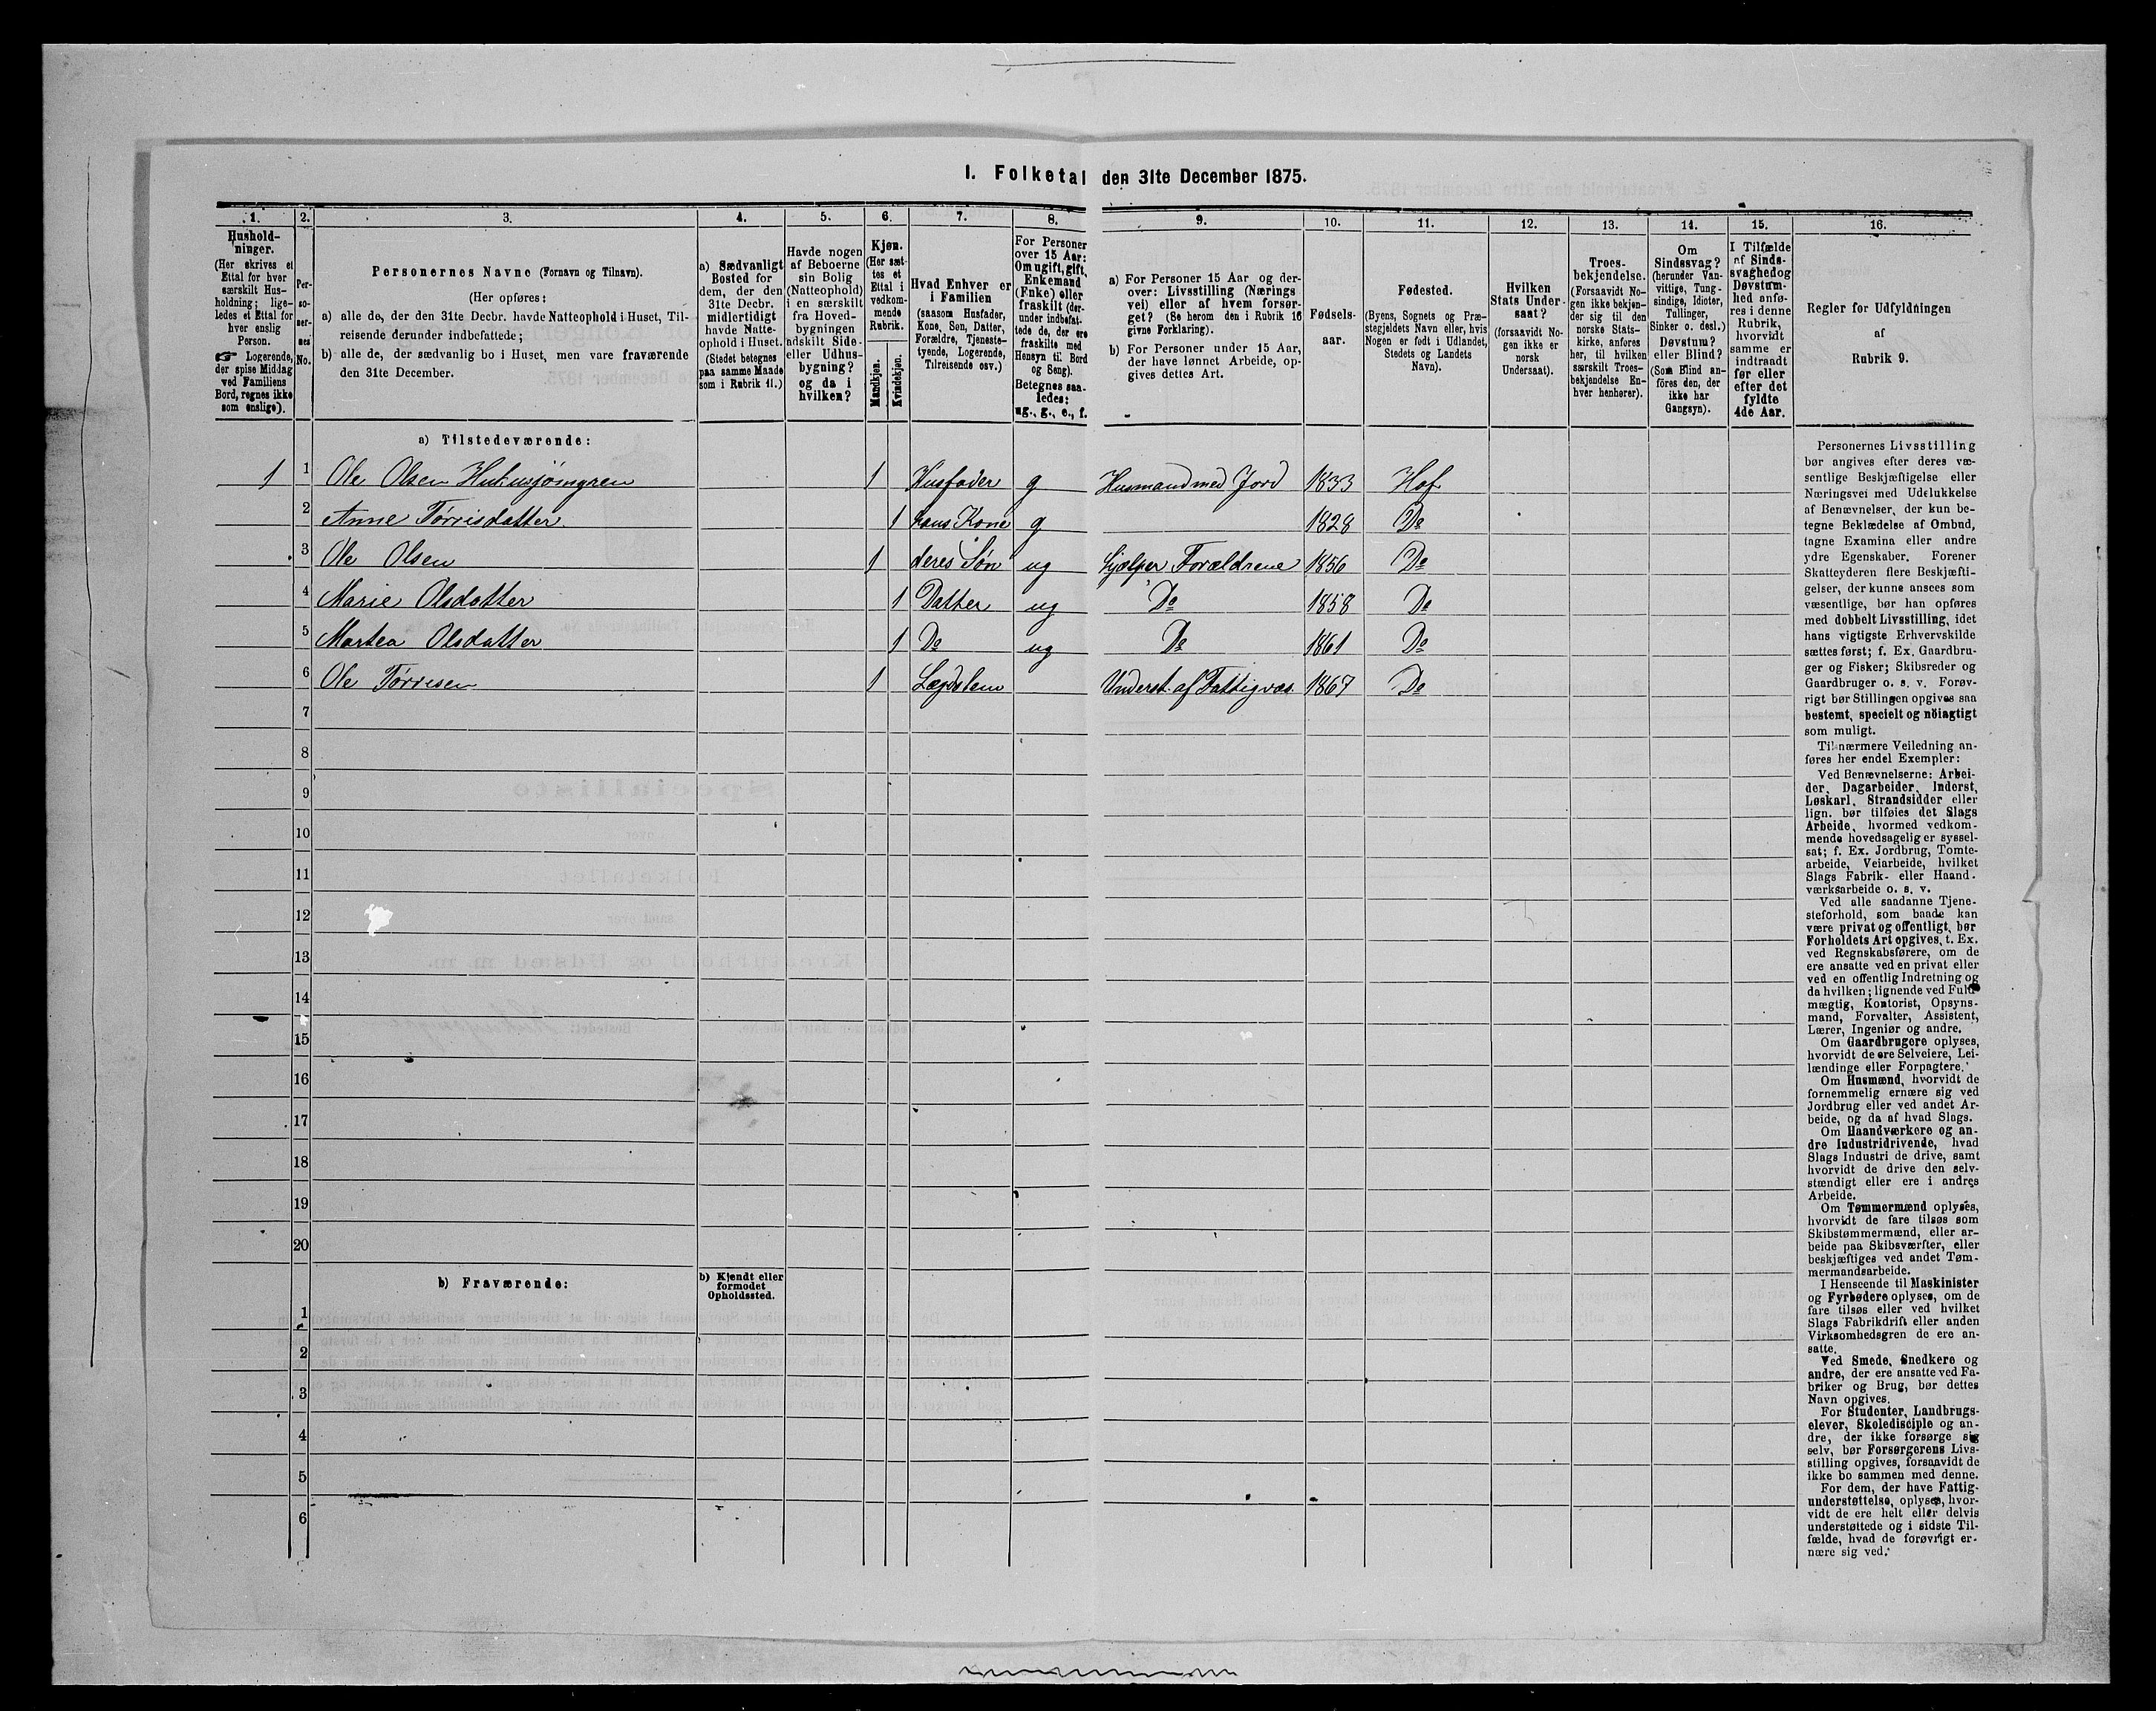 I. Folketal den 31te December 1875.
1.
Hushold-
ninger.
(Her skrives et
Ettal for hver
særskilt Hus-
holdning; lige-
ledes et Ettal for
hver enslig
Person.
☞ Logerende,
der spise Middag
ved Familiens
Bord, regnes ikke
som enslige).
2.
Per-
so-
ner-
nes
No.
3.
Personernes Navne (Fornavn og Tilnavn).
(Her opføres:
a) alle de, der den 31te Decbr. havde Natteophold i Huset, Til-
reisende derunder indbefattede;
b) alle de, der sædvanlig bo i Huset, men vare fraværende
den 31te December.
4.
a) Sædvanligt
Bosted for
dem, der den
31te Decbr.
midlertidigt
havde Natte-
ophold i Huset.
(Stedet betegnes
paa samme Maade
som i Rubrik 11.)
5.
Havde nogen
af Beboerne
sin Bolig
(Natteophold)
i en særskilt
fra Hoved-
bygningen
adskilt Side-
eller Udhus-
bygning?
og da i
hvilken?
6.
Kjøn.
(Her sæt-
tes et
Ettal i
vedkom-
mende
Rubrik.
Mandkjøn.
Kvindekjøn.
7.
Hvad Enhver er
i Familien
(saasom Husfader,
Kone, Søn, Datter,
Forældre, Tjeneste-
tyende, Logerende,
Tilreisende osv.)
8.
For Personer
over 15 Aar:
Om ugift, gift,
Enkemand
(Enke) eller
fraskilt (der-
under indbefat-
tede de, der ere
fraskilte med
Hensyn til Bord
og Seng).
Betegnes saa-
ledes:
ug., g., e., f.
9.
a) For Personer 15 Aar og der-
over: Livsstilling (Nærings
vei) eller af hvem forsør-
get? (Se herom den i Rubrik 16
givne Forklaring).
b) For Personer under 15 Aar,
der have lønnet Arbeide, op-
gives dettes Art.
10.
Fødsels-
aar.
11.
Fødested.
(Byens, Sognets og Præ-
stegjeldets Navn eller, hvis
Nogen er født i Udlandet,
Stedets og Landets
Navn).
12.
Hvilken
Stats Under-
saat?
(forsaavidt No-
gen ikke er
norsk
Undersaat).
13.
Troes-
bekjendelse.
(Forsaavidt No-
gen ikke bekjen-
der sig til den
norske Stats-
kirke, anføres
her, til hvilken
særskilt Troes-
bekjendelse En-
hver henhører).
14.
Om
Sindssvag?
(herunder Van-
vittige, Tung-
sindige, Idioter,
Tullinger,
Sinker o. desl.)
Døvstum?
eller Blind?
(Som Blind an-
føres den, der
ikke har
Gangsyn).
15.
I Tilfælde
af Sinds-
svaghed og
Døvstum-
hed anfø-
res i denne
Rubrik,
hvorvidt
samme er
indtraadt
før eller
efter det
fyldte
4de Aar.
16.
Regler for Udfyldningen
af
Rubrik 9.
a) Tilstedeværende:
1 1 Ole Olsen 1 Husfader g Husmand med Jord 1833 Hof
2 Anne Tørrisdatter 1 hans Kone g 1828 Do
3 Ole Olsen 1 deres Søn ug hjælper Forældrene 1856 Do
4 Marie Olsdatter 1 Datter ug Do 1858 Do
5 Martea Olsdatter 1 Do ug Do 1861 Do
6 Ole Tørresen 1 Lægdslem Underst. af Fattigvæs. 1867 Do
7
8
9
10
11
12
13
14
15
16
17
18
19
20
b) Fraværende:
b) Kjendt eller
formodet
Opholdssted.
1
2
3
4
5
6
Personernes Livsstilling
bør angives efter deres væ-
sentlige Beskjæftigelse eller
Næringsvei med Udelukkelse
af Benævnelser, der kun be-
tegne Beklædelse af Ombud,
tagne Examina eller andre
ydre Egenskaber. Forener
Skatteyderen flere Beskjæfti-
gelser, der kunne ansees som
væsentlige, bør han opføres
med dobbelt Livsstilling, idet
hans vigtigste Erhvervskilde
sættes først; f. Ex. Gaardbru-
ger og Fisker; Skibsreder og
Gaardbruger o. s. v. Forøv-
rigt bør Stillingen opgives saa
bestemt, specielt og nöiagtigt
som muligt.
Til nærmere Veiledning an-
føres her endel Exempler:
Ved Benævnelserne: Arbei-
der, Dagarbeider, Inderst,
Løskarl, Strandsidder eller
lign. bør tilføies det Slags
Arbeide, hvormed vedkom-
mende hovedsagelig er syssel-
sat; f. Ex. Jordbrug, Tomte-
arbeide, Veiarbeide, hvilket
Slags Fabrik- eller Haand-
værksarbeide o. s. v.
Ved alle saadanne Tjene-
steforhold, som baade kan
være privat og offentligt, bør
Forholdets Art opgives, t. Ex.
ved Regnskabsførere, om de
ere ansatte ved en privat eller
ved en offentlig Indretning og
da hvilken; lignende ved Fuld-
mægtig, Kontorist, Opsyns-
mand, Forvalter, Assistent,
Lærer, Ingeniør og andre.
Om Gaardbrugere oplyses,
hvorvidt de ere Selveiere, Lei-
lændinge eller Forpagtere.
Om Husmænd, hvorvidt de
fornemmelig ernære sig ved
Jordbrug eller ved andet Ar-
beide, og da af hvad Slags.
Om Haandværkere og an-
dre Industridrivende, hvad
Slags Industri de drive, samt
hvorvidt de drive den selv-
stændigt eller ere i andres
Arbeide.
Om Tømmermænd oplyses,
hvorvidt de fare tilsøs som
Skibstømmermænd, eller ar-
beide paa Skibsværfter, eller
beskjæftiges ved andet Tøm-
mermandsarbeide.
I Henseende til Maskinister
og Fyrbødere oplyses, om de
fare tilsøs eller ved hvilket
Slags Fabrikdrift eller anden
Virksomhedsgren de ere an-
satte.
Ved Smede, Snedkere og
andre, der ere ansatte ved Fa-
briker og Brug, bør dettes
Navn opgives.
For Studenter, Landbrugs-
elever, Skoledisciple og an-
dre, der ikke forsørge sig
selv, bør Forsørgerens Livs-
stilling opgives, forsaavidt de
ikke bo sammen med denne.
For dem, der have Fattig-
understøttelse, oplyses, hvor-
vidt de ere helt eller delvis
understøttede og i sidste Til-
fælde, hvad de forøvrigt er-
nære sig ved.